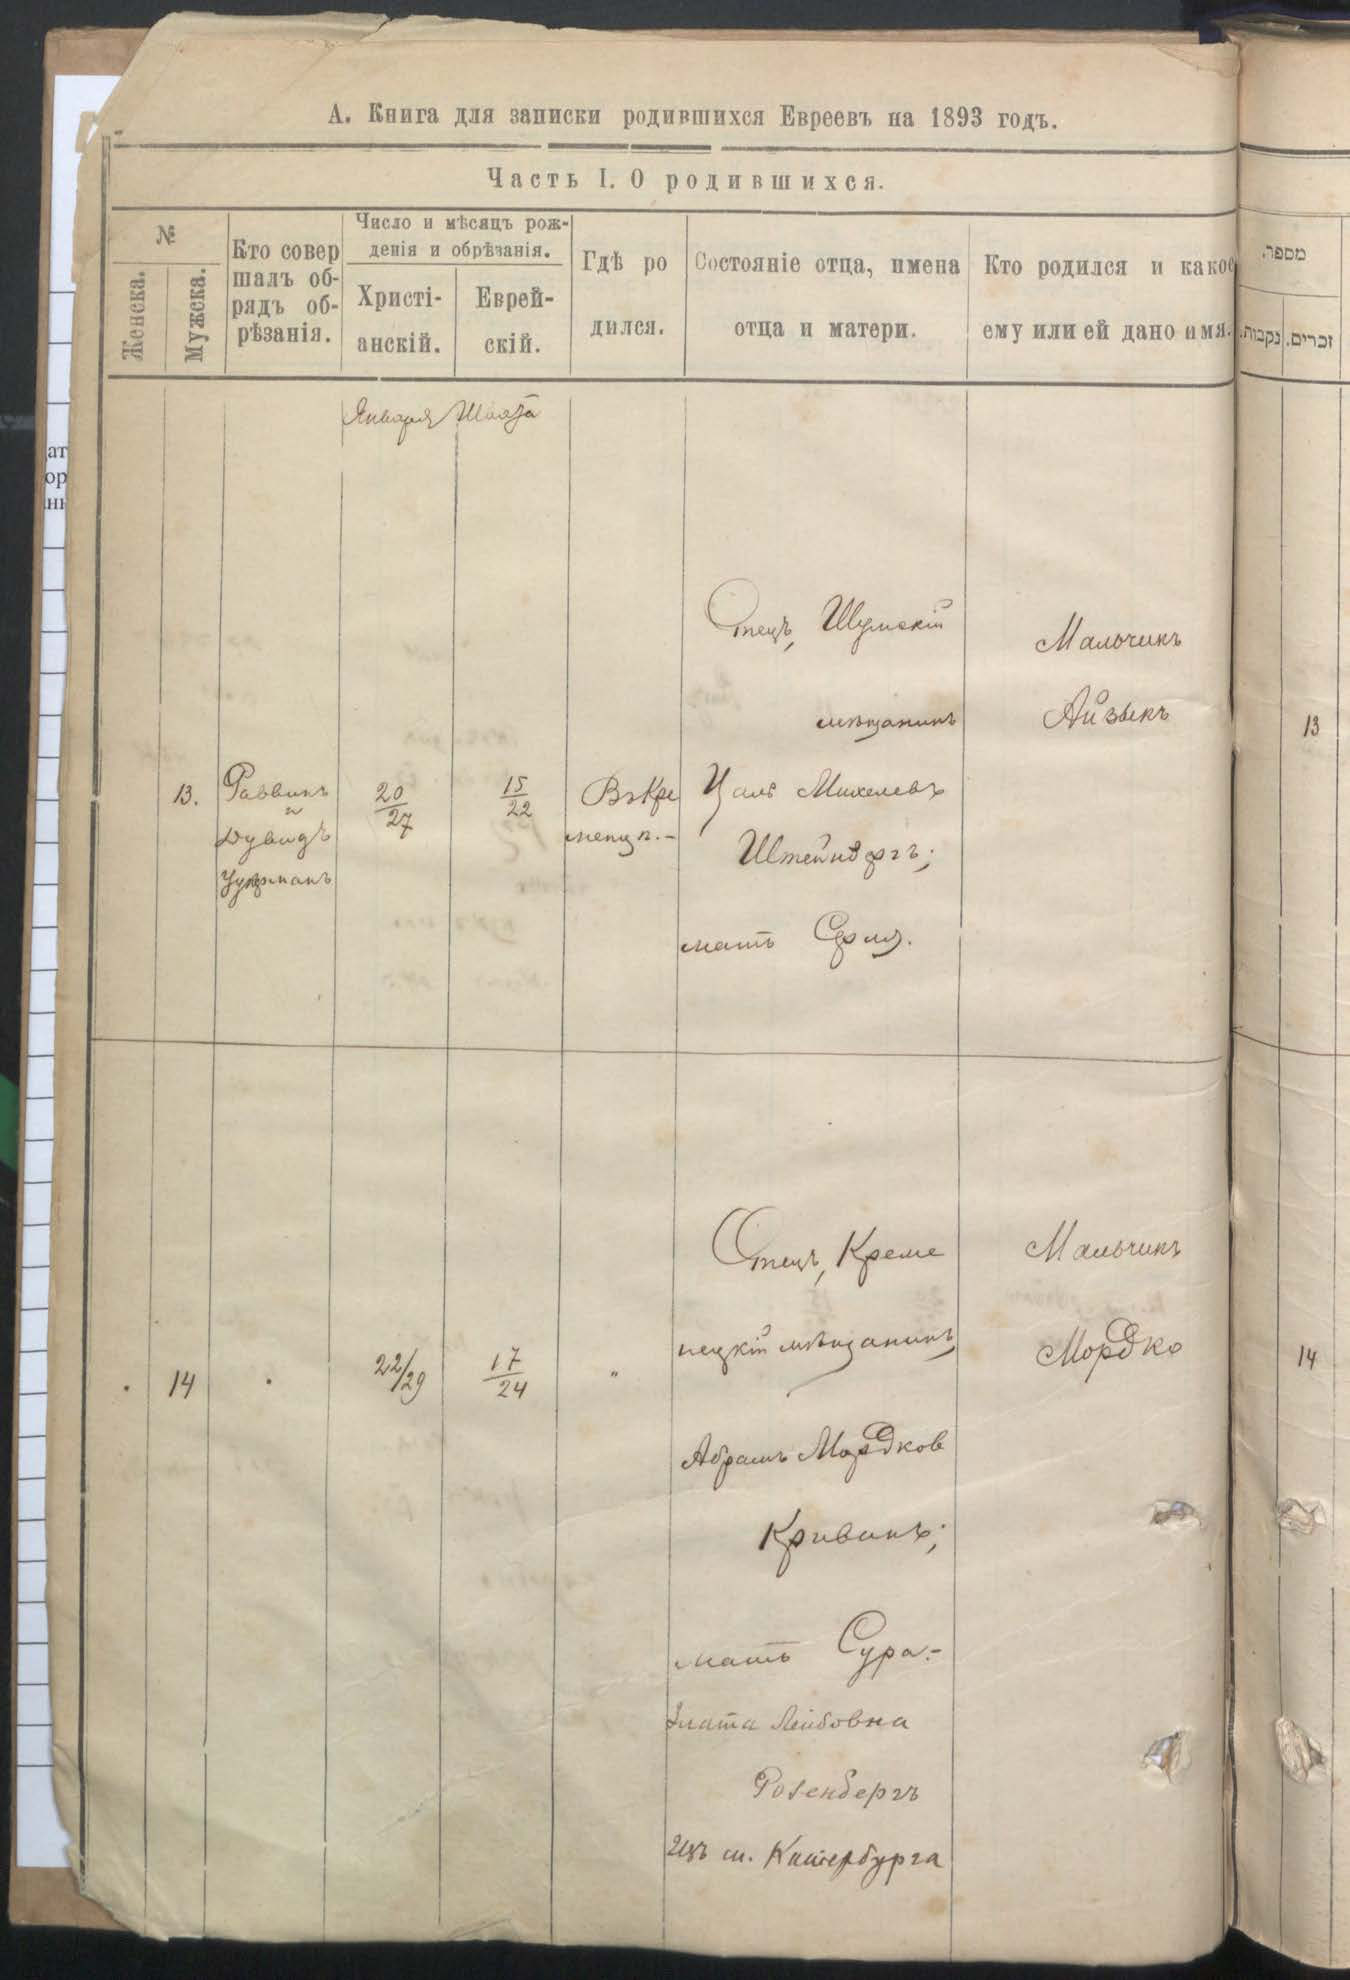 А. Книга для записки родившихся Евреевъ на 1893 годъ.
Часть I. О родившихся.
№
Женска.
Мужеска.
Кто совер
шалъ об-
рядъ об-
рѣзанія.
Число и мѣсяцъ рож-
денія и обрѣзанія.
Христі-
анскій.
Еврей-
скій.
Гдѣ ро
дился.
Состояніе отца, имена
отца и матери.
Кто родился и какое
ему или ей дано имя.
מספר.
נקבות.
זכרים.
Января
13.
Раввинъ
и
Дувидъ
20
27
15
22
Въ Кре
менцѣ.-
Отецъ, Шумскій
мѣщанинъ
Цаль Михелевъ
Штейнбергъ;
мать
Мальчикъ
Айзыкъ
13
14
22/29
17
24
"
Отецъ, Креме
нецкій мѣщанинъ
Абрамъ Мордков
Кривинъ;
мать Сура-
Злата Лейбовна
Розенбергъ
изъ м. Катербурга
Мальчикъ
Мордко
14
ат
ор
.нн